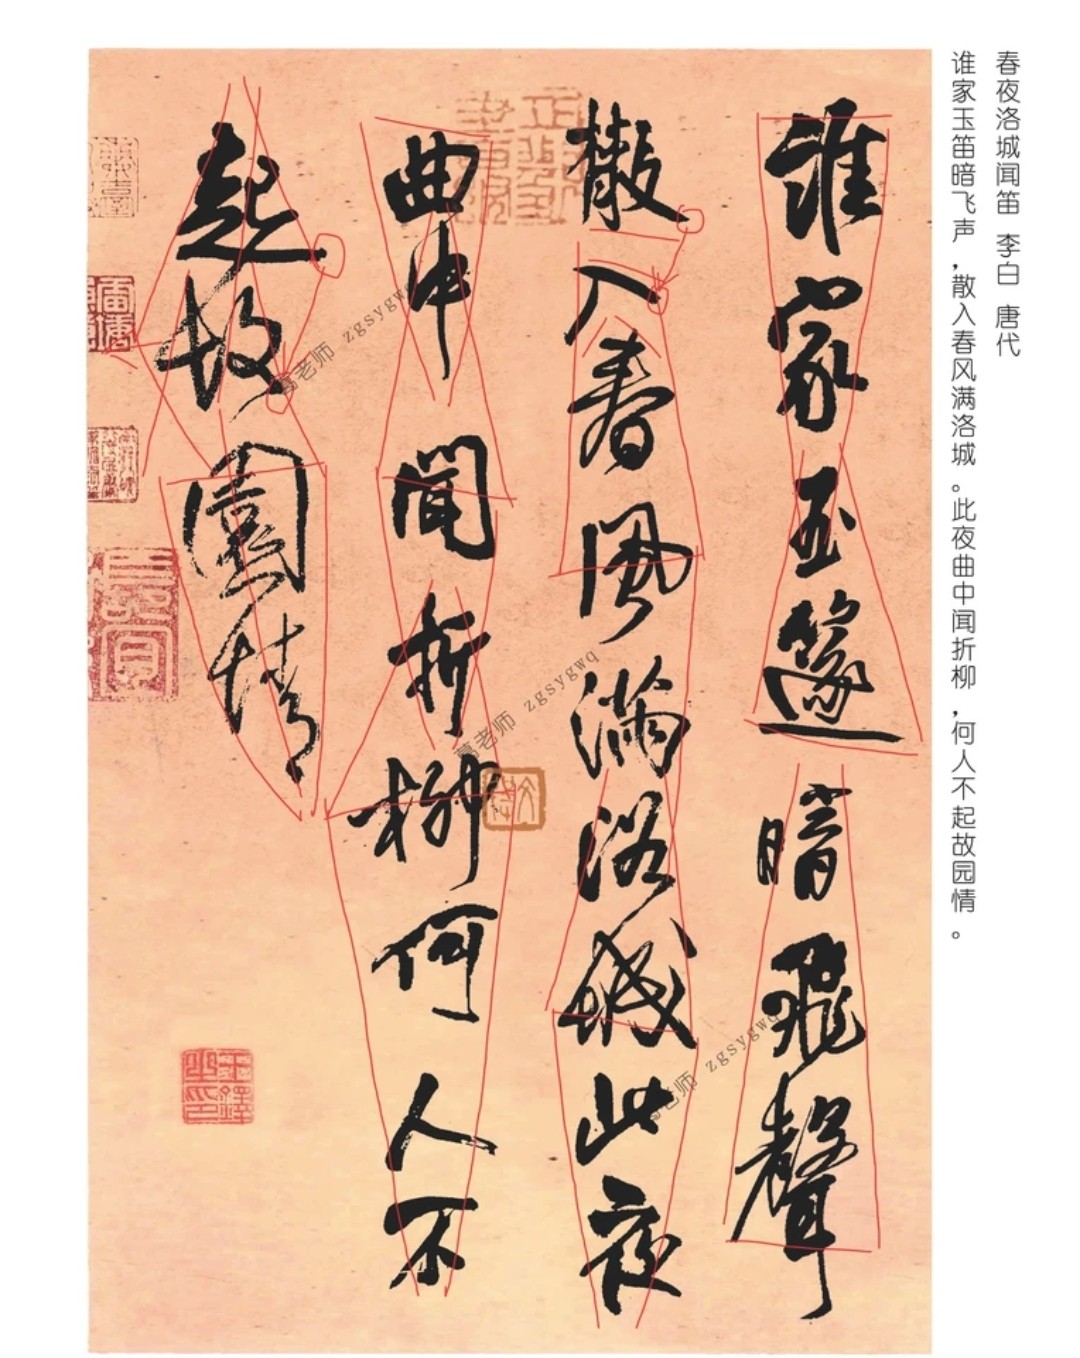 春夜洛城闻笛 李白 唐代
谁家玉笛暗飞声，散入春风满洛城。此夜曲中闻折柳，何人不起故园情。
誰家玉篴暗飛聲
散入春風滿洛城此夜
曲中聞折柳何人不
起故園情
葛老师 zgsygwq
葛老师 zgsygwq
葛老师 zgsygwq